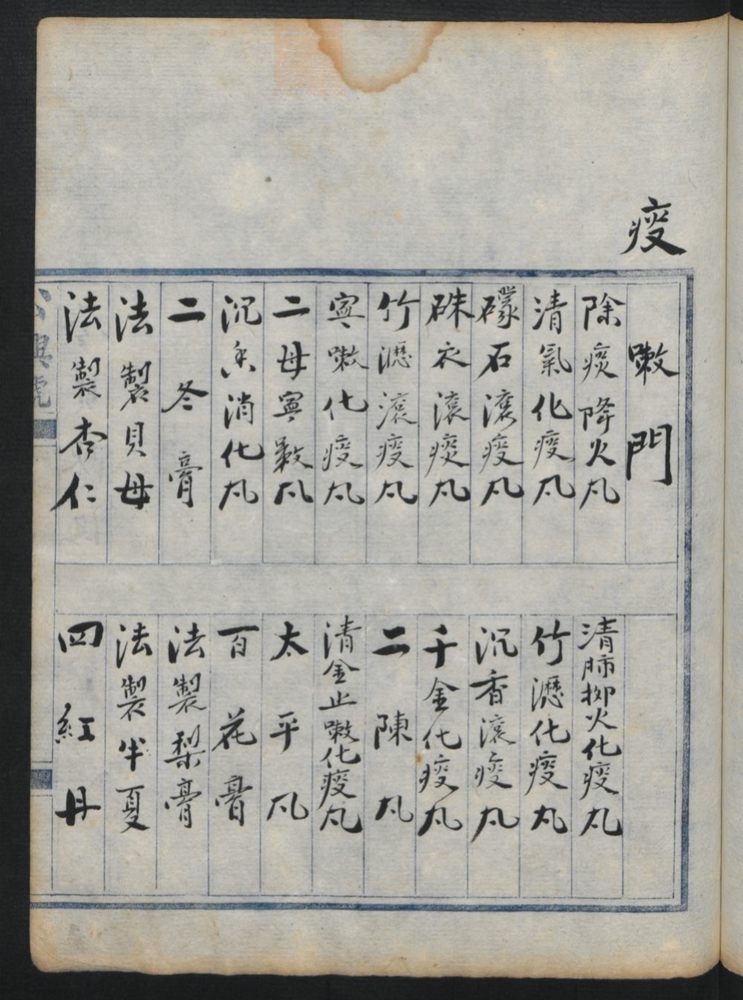 痰
嗽門
除痰降火凢
清氣化痰凢
礞石滾痰凢
硃衣滾痰凢
竹瀝滾痰凢
寧嗽化痰凢
二母寧嗽凢
沉香消化凢
二冬膏
法製貝母
法製杏仁
清肺抑火化痰凢
竹瀝化痰丸
沉香滾痰凢
千金化痰凢
二陳凢
清金止嗽化痰凢
太平凢
百花膏
法製梨膏
法製半夏
四紅丹